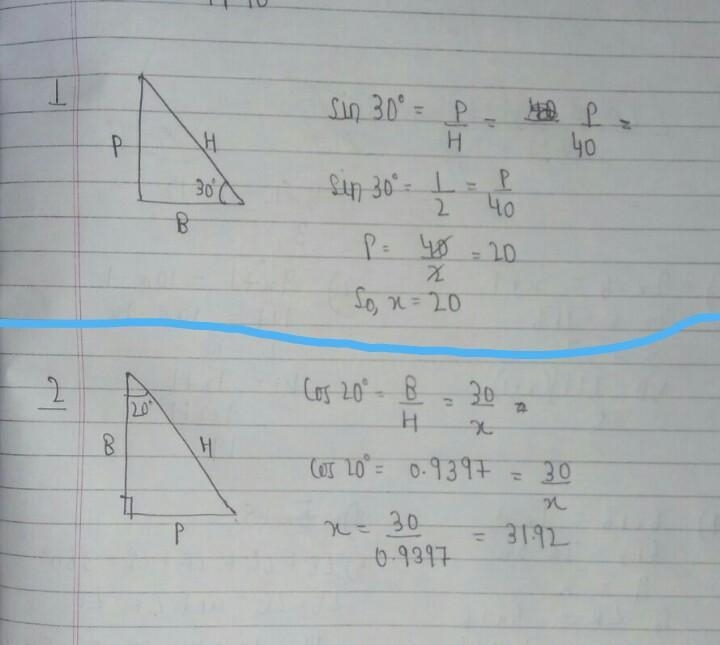 1
P
H
30°
B
Sin 30° = P/H = P/40 =
Sin 30° = 1/2 = P/40
P = 40/2 = 20
So, x = 20
2
20°
B
H
P
Cos 20° = B/H = 30/x =
Cos 20° = 0.9397 = 30/x
x = 30/0.9397 = 31.92